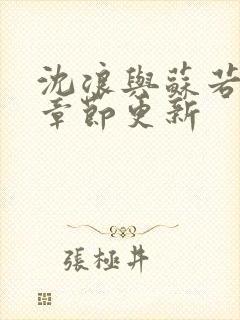 沈浪與蘇若
章節更新
張極井